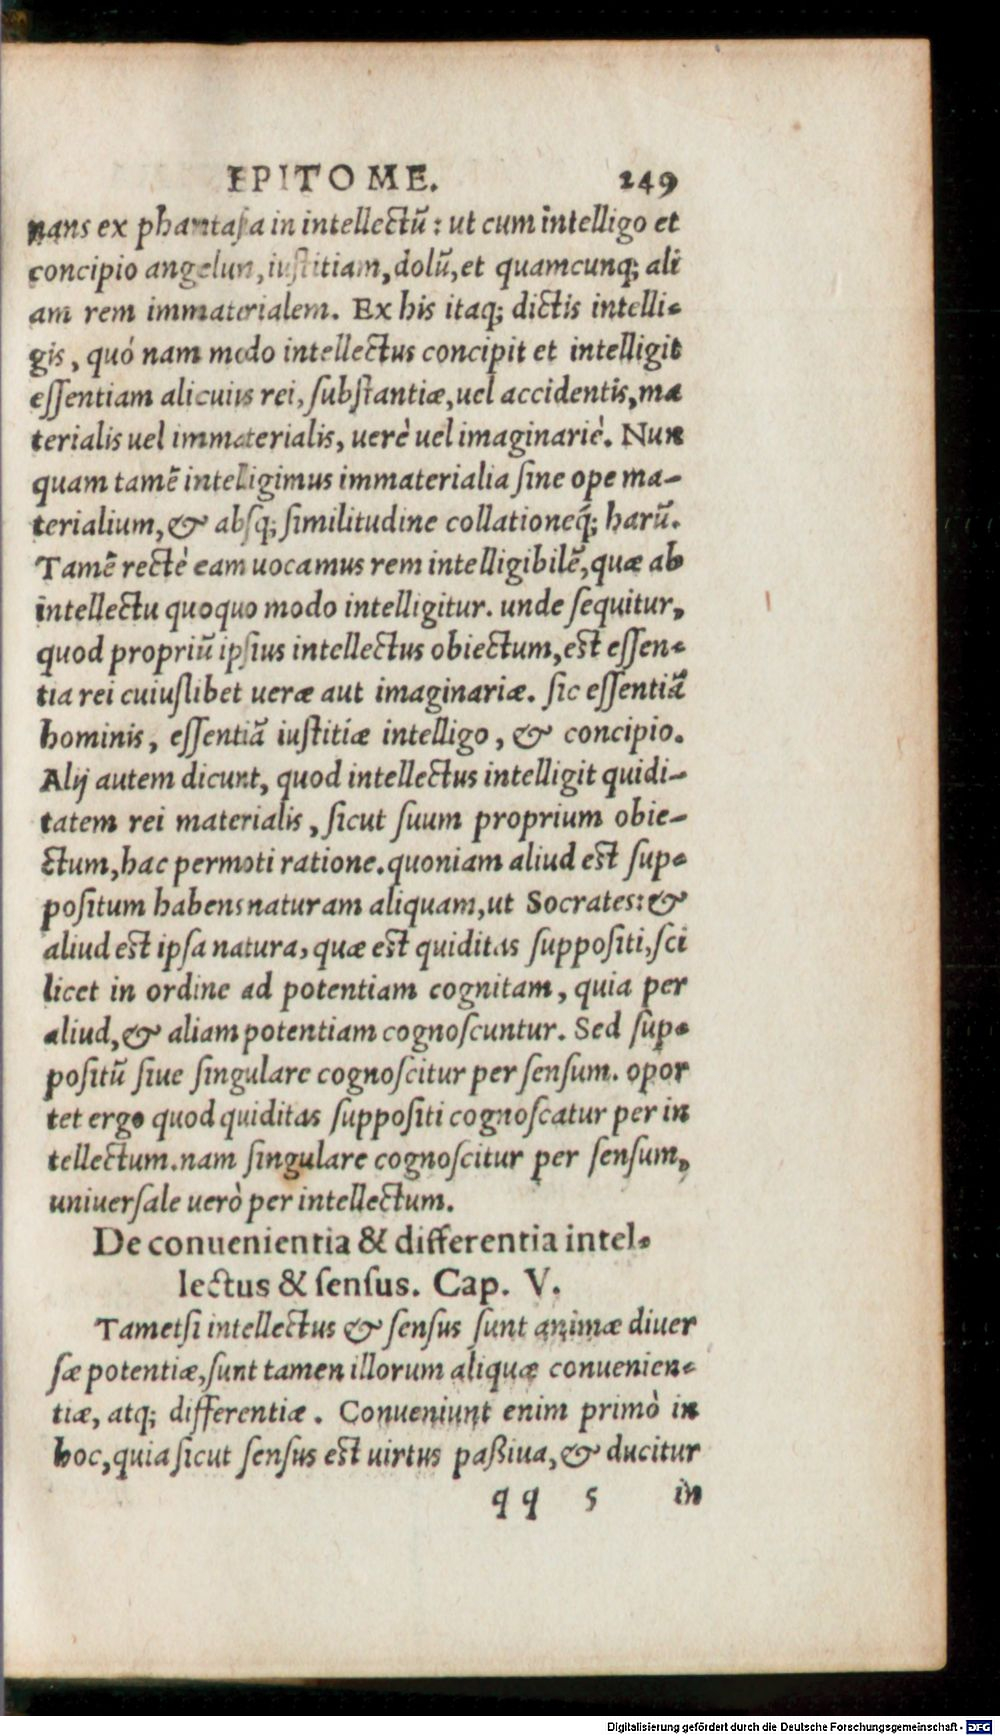 EPITOME. 249
nans ex phantasia in intellectũ: ut cum intelligo et
concipio angelum, iustitiam, dolũ, et quamcunq; ali
am rem immaterialem. Ex his itaq; dictis intelli-
gis, quó nam modo intellectus concipit et intelligit
eſſentiam alicuius rei, ſubſtantiæ, uel accidentis, ma
terialis uel immaterialis, uerè uel imaginariè. Nun
quam tamẽ intelligimus immaterialia ſine ope ma-
terialium, & abſq; ſimilitudine collationeq́; harũ.
Tamẽ rectè eam uocamus rem intelligibilẽ, quæ ab
intellectu quoquo modo intelligitur. unde ſequitur,
quod propriũ ipſius intellectus obiectum, eſt eſſen-
tia rei cuiuſlibet ueræ aut imaginariæ. ſic eſſentiã
hominis, eſſentiã iuſtitiæ intelligo, & concipio.
Alij autem dicunt, quod intellectus intelligit quidi-
tatem rei materialis, ſicut ſuum proprium obie-
ctum, hac permoti ratione. quoniam aliud eſt ſup-
poſitum habens naturam aliquam, ut Socrates: &
aliud eſt ipſa natura, quæ eſt quiditas ſuppoſiti, ſci
licet in ordine ad potentiam cognitam, quia per
aliud, & aliam potentiam cognoſcuntur. Sed ſup-
poſitũ ſiue ſingulare cognoſcitur per ſenſum. opor
tet ergo quod quiditas ſuppoſiti cognoſcatur per in
tellectum. nam ſingulare cognoſcitur per ſenſum,
uniuerſale uerò per intellectum.
De conuenientia & differentia intel-
lectus & ſenſus. Cap. V.
Tametſi intellectus & ſenſus ſunt animæ diuer
ſæ potentiæ, ſunt tamen illorum aliquæ conuenien-
tiæ, atq; differentiæ. Conueniunt enim primò in
hoc, quia ſicut ſenſus eſt uirtus paßiua, & ducitur
qq 5 in
Digitalisierung gefördert durch die Deutsche Forschungsgemeinschaft - DFG